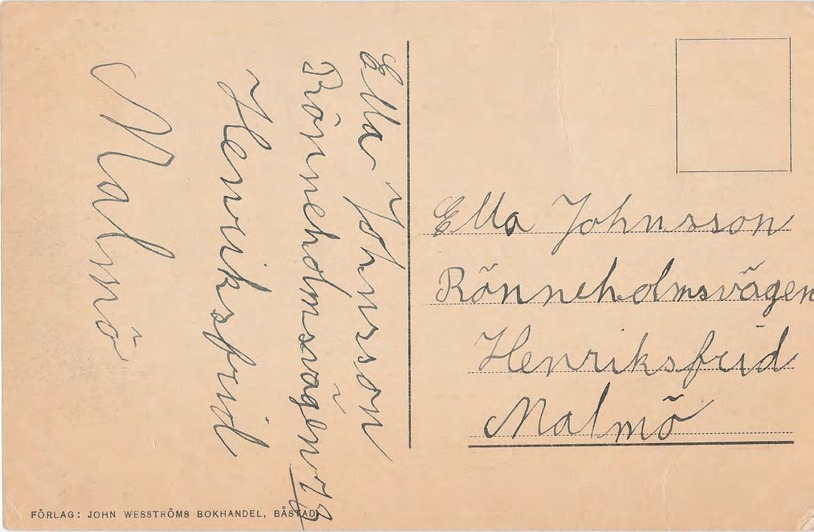 Ella Johnsson
Rönneholmsvägen
Henriksfrid
Malmö
Ella Johnsson
Rönneholmsvägen
Henriksfrid
Malmö
FÖRLAG: JOHN WESSTRÖMS BOKHANDEL, BÅSTAD